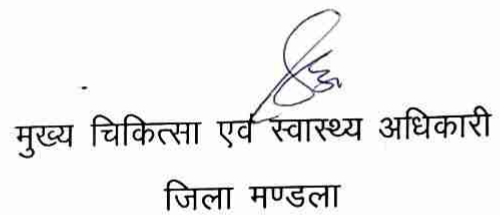 मुख्य चिकित्सा एवं स्वास्थ्य अधिकारी
जिला मण्डला